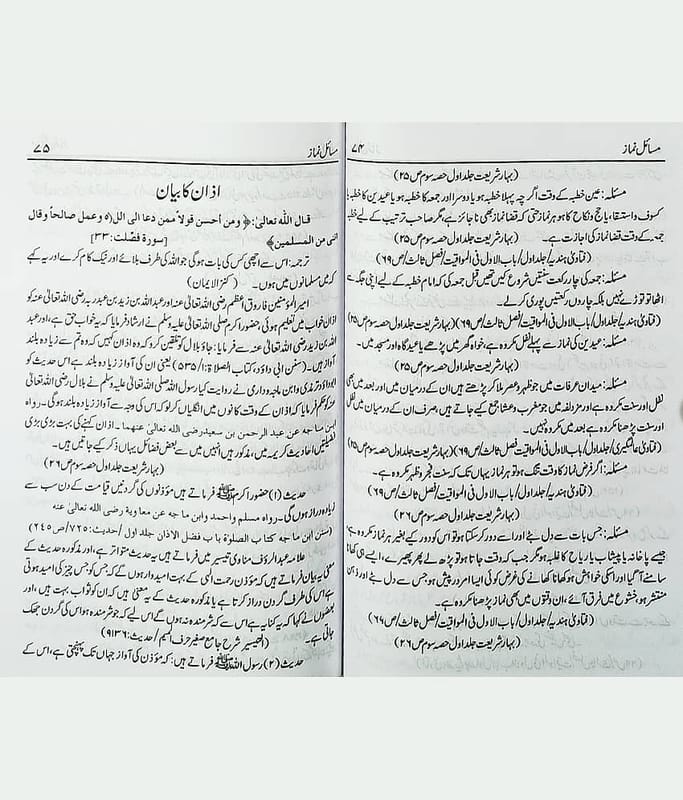 ۷۴
مسائل نماز
(بہار شریعت جلد اول حصہ سوم ص ۲۵)
مسئلہ: عین خطبہ کے وقت اگرچہ پہلا خطبہ ہو یا دوسرا اور جمعہ کا خطبہ ہو یا عیدین کا خطبہ یا
کسوف و استسقاء یا حج و نکاح کا ہو ہر نماز حتی کہ قضا نماز بھی ناجائز ہے، مگر صاحب ترتیب کے لیے خطبۂ
جمعہ کے وقت قضا نماز کی اجازت ہے۔ (بہار شریعت جلد اول حصہ سوم ص ۲۵)
(فتاویٰ ہندیہ/جلد اول/باب الاول فی المواقیت/فصل ثالث/ص ۶۹)
مسئلہ: جمعہ کی چار رکعت سنتیں شروع کیں تھیں قبل جمعہ کی کہ امام خطبہ کے لیے اپنی جگہ سے
اٹھا تو توڑے نہیں بلکہ چاروں رکعتیں پوری کر لے۔
(فتاویٰ ہندیہ/جلد اول/باب الاول فی المواقیت/فصل ثالث/ص ۶۹) (بہار شریعت جلد اول حصہ سوم ص ۲۵)
مسئلہ: عیدین کی نماز سے پہلے نفل مکروہ ہے، خواہ گھر میں پڑھے یا عیدگاہ اور مسجد میں۔
(بہار شریعت جلد اول حصہ سوم ص ۲۵)
مسئلہ: میدان عرفات میں جو ظہر و عصر ملا کر پڑھتے ہیں ان کے درمیان میں اور بعد میں بھی
نفل اور سنت مکروہ ہے اور مزدلفہ میں جو مغرب و عشا جمع کیے جاتے ہیں صرف ان کے درمیان میں نفل
اور سنت پڑھنا مکروہ ہے بعد میں مکروہ نہیں۔
(فتاویٰ عالمگیری/جلد اول/باب الاول فی المواقیت/فصل ثالث/ص ۶۹) (بہار شریعت جلد اول حصہ سوم ص ۲۵)
مسئلہ: اگر فرض نماز کا وقت تنگ ہو تو ہر نماز یہاں تک کہ سنت فجر و ظہر مکروہ ہے۔
(فتاویٰ ہندیہ/جلد اول/باب الاول فی المواقیت/فصل ثالث/ص ۶۹)
(بہار شریعت جلد اول حصہ سوم ص ۲۶)
مسئلہ: جس بات سے دل بٹے اور اسے دور کر سکتا ہو تو اس کو دور کیے بغیر ہر نماز مکروہ ہے،
جیسے پاخانہ یا پیشاب یا ریاح کا غلبہ ہو مگر جب کہ وقت جاتا ہو تو پڑھ لے پھر پھیرے، ایسے ہی کھانا
سامنے آ گیا اور اسکی خواہش ہو کھانا کھانے کی غرض کوئی ایسا امر در پیش ہو جس سے دل بٹے اور ذہن
منتشر ہو، خشوع میں فرق آئے، ان وقتوں میں بھی نماز پڑھنا مکروہ ہے۔
(فتاویٰ ہندیہ/جلد اول/باب الاول فی المواقیت/فصل ثالث/ص ۶۹)
(بہار شریعت جلد اول حصہ سوم ص ۲۶)
مسائل نماز
۷۵
اذان کا بیان
قال اللہ تعالیٰ:﴿ومن أحسن قولاً ممن دعا الی الله وعمل صالحاً وقال
اننی من المسلمین﴾ [سورۃ فصّلت: ۳۳]
ترجمہ: اس سے اچھی کس کی بات ہو گی جو اللہ کی طرف بلائے اور نیک کام کرے اور یہ کہے
کہ میں مسلمانوں میں ہوں۔ (کنز الایمان)
امیر المؤمنین فاروق اعظم رضی اللہ تعالیٰ عنہ اور عبد اللہ بن زید بن عبد ربہ رضی اللہ تعالیٰ عنہ کو
اذان خواب میں تعلیم ہوئی حضور اکرم صلی اللہ تعالیٰ علیہ وسلم نے ارشاد فرمایا کہ یہ خواب حق ہے، اور عبد
اللہ بن زید رضی اللہ تعالیٰ عنہ سے فرمایا: جاؤ بلال کو تلقین کرو کہ وہ اذان کہیں کہ وہ تم سے زیادہ بلند
آواز ہیں۔ (سنن ابی داؤد، کتاب الصلاۃ ج:۱/ص ۵۳۵) یعنی ان کی آواز زیادہ بلند ہے اس حدیث کو
ابوداؤد ترمذی و ابن ماجہ و دارمی نے روایت کیا رسول اللہ صلی اللہ تعالیٰ علیہ وسلم نے بلال رضی اللہ تعالیٰ
عنہ کو حکم فرمایا کہ اذان کے وقت کانوں میں انگلیاں کر لو کہ اس کی وجہ سے آواز زیادہ بلند ہوگی۔ رواہ
ابن ماجہ عن عبد الرحمن بن سعید رضی الله تعالیٰ عنھما۔ اذان کہنے کی بہت بڑی بڑی
فضیلتیں احادیث کریمہ میں مذکور ہیں انہیں میں سے بعض فضائل یہاں ذکر کیے جاتیں ہیں۔
(بہار شریعت جلد اول حصہ سوم ص ۲۶)
حدیث (۱) حضور اکرم ﷺ فرماتے ہیں مؤذنوں کی گردنیں قیامت کے دن سب سے
زیادہ دراز ہوں گی۔ رواہ مسلم واحمد وابن ماجہ عن معاویة رضی الله تعالیٰ عنه
(سنن ابن ماجہ کتاب الصلوٰۃ باب فضل الاذان جلد اول/حدیث: ۷۲۵/ص ۲۴۵)
علامہ عبد الرؤف مناوی تیسیر میں فرماتے ہیں یہ حدیث متواتر ہے، اور مذکورہ حدیث کے
معنی یہ بیان فرماتے ہیں کہ مؤذن رحمت الٰہی کے بہت امیدوار ہوں گے کہ جس کو جس چیز کی امید ہوتی
ہے اس کی طرف گردن دراز کرتا ہے یا مذکورہ حدیث کے یہ معنی ہیں کہ ان کو ثواب بہت ہیں، اور
بعضوں نے کہا کہ یہ کنایہ ہے اس سے کہ شرمندہ نہ ہوں گے اس لیے کہ جو شرمندہ ہوا اس کی گردن جھک
جاتی ہے۔ (التیسیر شرح جامع صغیر حرف المیم/حدیث: ۹۱۳۶)
حدیث (۲) رسول اللہ ﷺ فرماتے ہیں: کہ مؤذن کی آواز جہاں تک پہنچتی ہے، اس کے